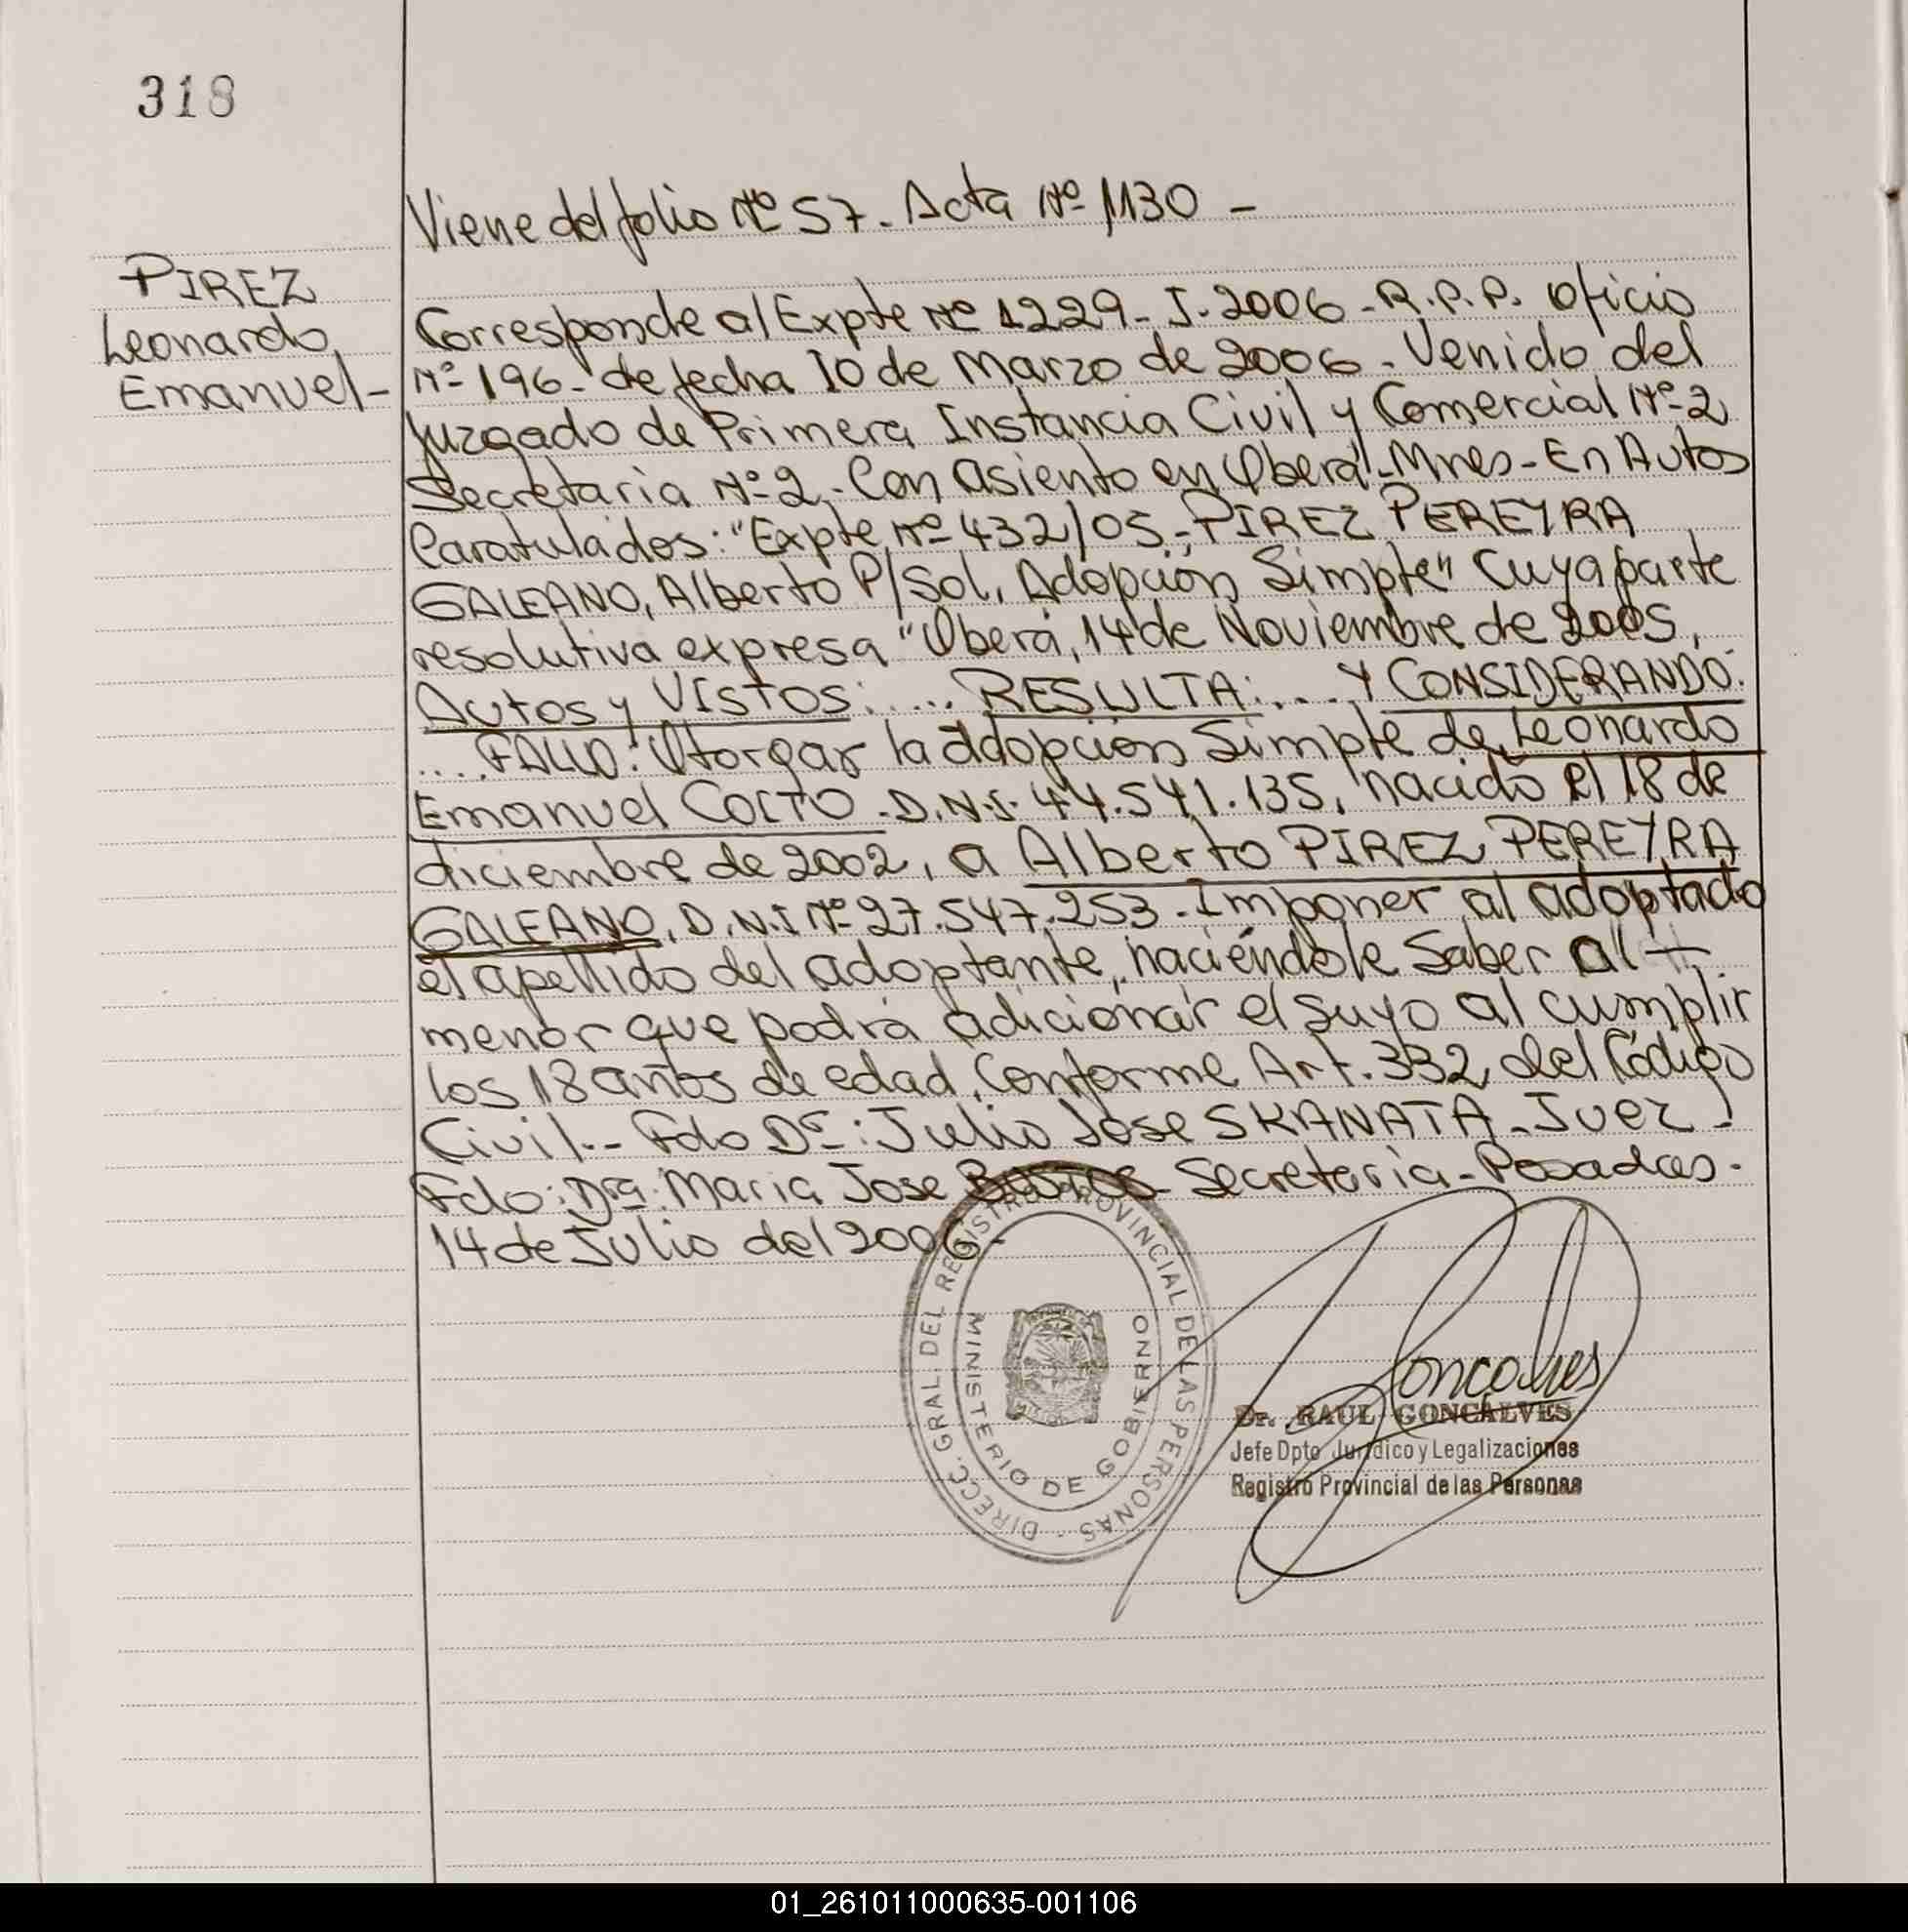 318
Viene del folio Nº 57. Acta Nº 1130 -
PIREZ
Leonardo
Emanuel-
Corresponde al Expte Nº 1229- J. 2006 - R.P.P. oficio
Nº 196- de fecha 10 de Marzo de 2006. Venido del
Juzgado de Primera Instancia Civil y Comercial Nº 2
Secretaria Nº 2. Con asiento en Oberá - Mnes - En Autos
Caratulados: "Expte Nº 432/05 - PIREZ PEREYRA
GALEANO, Alberto P/Sol. Adopción Simple" cuya parte
resolutiva expresa "Oberá, 14 de Noviembre de 2005,
Autos y VIstos: .... RESULTA: .... Y CONSIDERANDO:
.... FALLO: Otorgar la adopción Simple de Leonardo
Emanuel COITO - D.N.I. 44.541.135, nacido el 18 de
diciembre de 2002, a Alberto PIREZ PEREYRA
GALEANO, D.N.I Nº 27.547.253. Imponer al adoptado
el apellido del adoptante, haciéndole Saber al
menor que podrá adicionar el suyo al cumplir
los 18 años de edad, Conforme Art. 332 del Código
Civil.- Fdo Dr: Julio Jose SKANATA - Juez -
Fdo: Dra: Maria Jose BUSTOS - Secretaria - Posadas -
14 de Julio del 2006 -
DIRECC. GRAL. DEL REGISTRO PROVINCIAL DE LAS PERSONAS -
MINISTERIO DE GOBIERNO
Goncalves
Dr. RAUL GONCALVES
Jefe Dpto Jurídico y Legalizaciones
Registro Provincial de las Personas
01_261011000635-001106